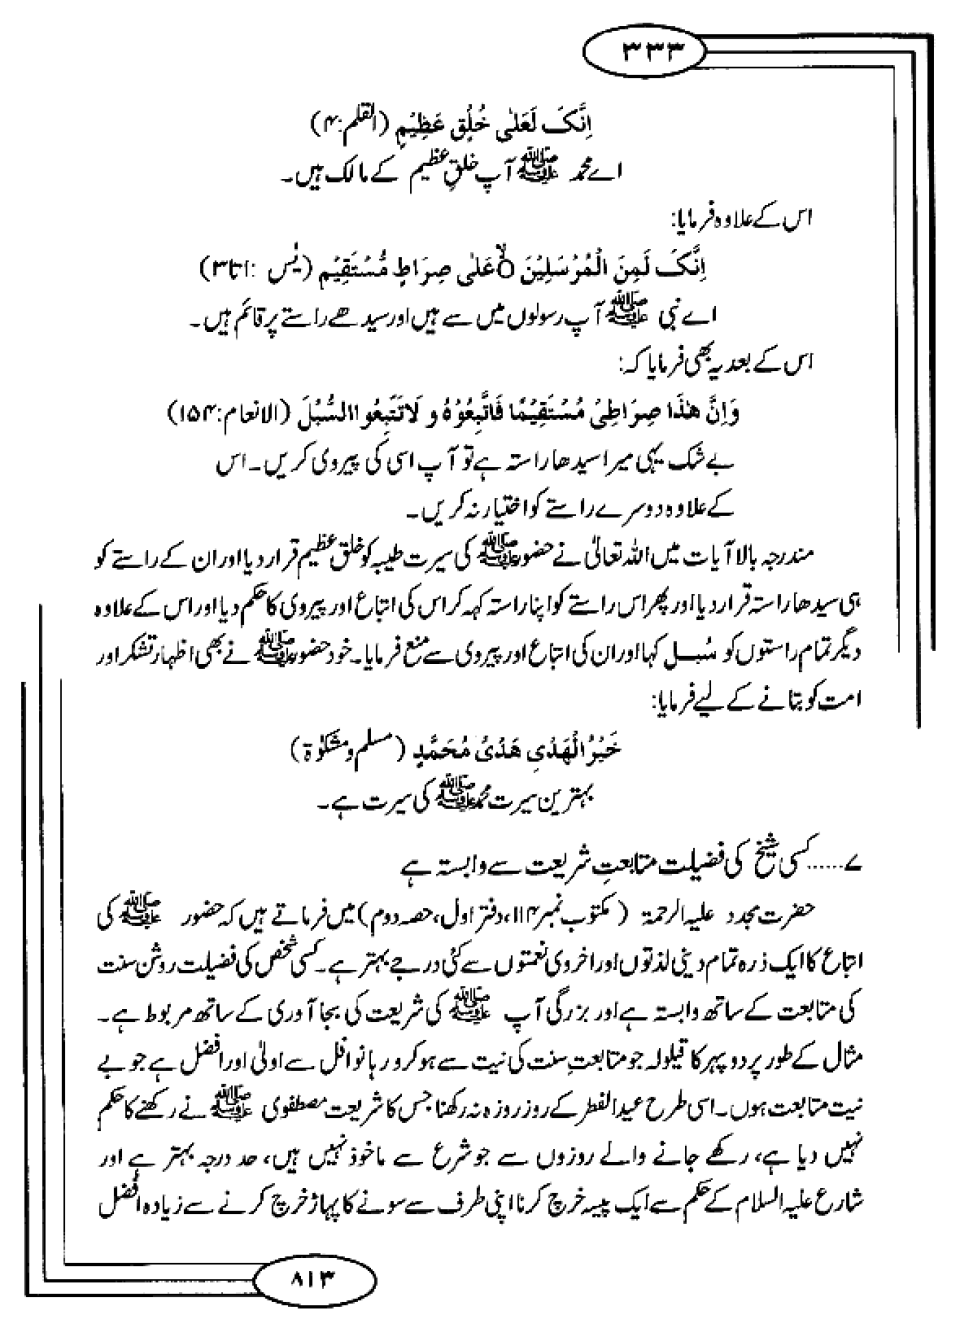 ۳۳۳
اِنَّکَ لَعَلٰی خُلُقٍ عَظِیْمٍ (القلم:۴)
اے محمد ﷺ آپ خلقِ عظیم کے مالک ہیں۔
اس کے علاوہ فرمایا:
اِنَّکَ لَمِنَ الْمُرْسَلِیْنَ ۝ لا عَلٰی صِرَاطٍ مُّسْتَقِیْمٍ (یٰس :اتا۳)
اے نبی ﷺ آپ رسولوں میں سے ہیں اور سیدھے راستے پر قائم ہیں۔
اس کے بعد یہ بھی فرمایا کہ:
وَاِنَّ ھٰذَا صِرَاطِیْ مُسْتَقِیْمًا فَاتَّبِعُوْهُ وَ لَا تَتَّبِعُوا السُّبُلَ (الانعام:۱۵۴)
بے شک یہی میرا سیدھا راستہ ہے تو آپ اسی کی پیروی کریں۔ اس
کے علاوہ دوسرے راستے کو اختیار نہ کریں۔
مندرجہ بالا آیات میں اللہ تعالیٰ نے حضور ﷺ کی سیرت طیبہ کو خلق عظیم قرار دیا اور ان کے راستے کو
ہی سیدھا راستہ قرار دیا اور پھر اس راستے کو اپنا راستہ کہہ کر اس کی اتباع اور پیروی کا حکم دیا اور اس کے علاوہ
دیگر تمام راستوں کو سُبل کہا اور ان کی اتباع اور پیروی سے منع فرمایا۔ خود حضور ﷺ نے بھی اظہار تشکر اور
امت کو بتانے کے لیے فرمایا:
خَیْرُ الْھَدْیِ ھَدْیُ مُحَمَّدٍ (مسلم و مشکوٰۃ)
بہترین سیرت محمد ﷺ کی سیرت ہے۔
۷......کسی شیخ کی فضیلت متابعتِ شریعت سے وابستہ ہے
حضرت مجدد علیہ الرحمۃ (مکتوب نمبر ۱۱۴، دفتر اول، حصہ دوم) میں فرماتے ہیں کہ حضور ﷺ کی
اتباع کا ایک ذرہ تمام دینی لذتوں اور اخروی نعمتوں سے کئی درجے بہتر ہے۔ کسی شخص کی فضیلت روشن سنت
کی متابعت کے ساتھ وابستہ ہے اور بزرگی آپ ﷺ کی شریعت کی بجا آوری کے ساتھ مربوط ہے۔
مثال کے طور پر دوپہر کا قیلولہ جو متابعتِ سنت کی نیت سے ہو کروڑہا نوافل سے اولیٰ اور افضل ہے جو بے
نیت متابعت ہوں۔ اسی طرح عید الفطر کے روز روزہ نہ رکھنا جس کا شریعت مصطفوی ﷺ نے رکھنے کا حکم
نہیں دیا ہے، رکھے جانے والے روزوں سے جو شرع سے ماخوذ نہیں ہیں، حد درجہ بہتر ہے اور
شارع علیہ السلام کے حکم سے ایک پیسہ خرچ کرنا اپنی طرف سے سونے کا پہاڑ خرچ کرنے سے زیادہ افضل
۸۱۳